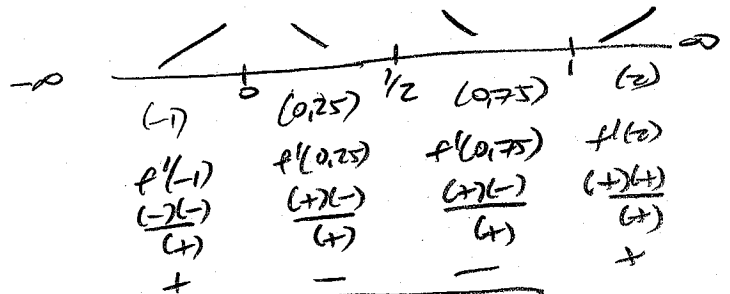 -∞ 0 1/2 1 ∞
(-1) (0,25) (0,75) (2)
f'(-1) f'(0,25) f'(0,75) f'(2)
(-)(-) (+)(-) (+)(-) (+)(+)
(+) (+) (+) (+)
+ - - +